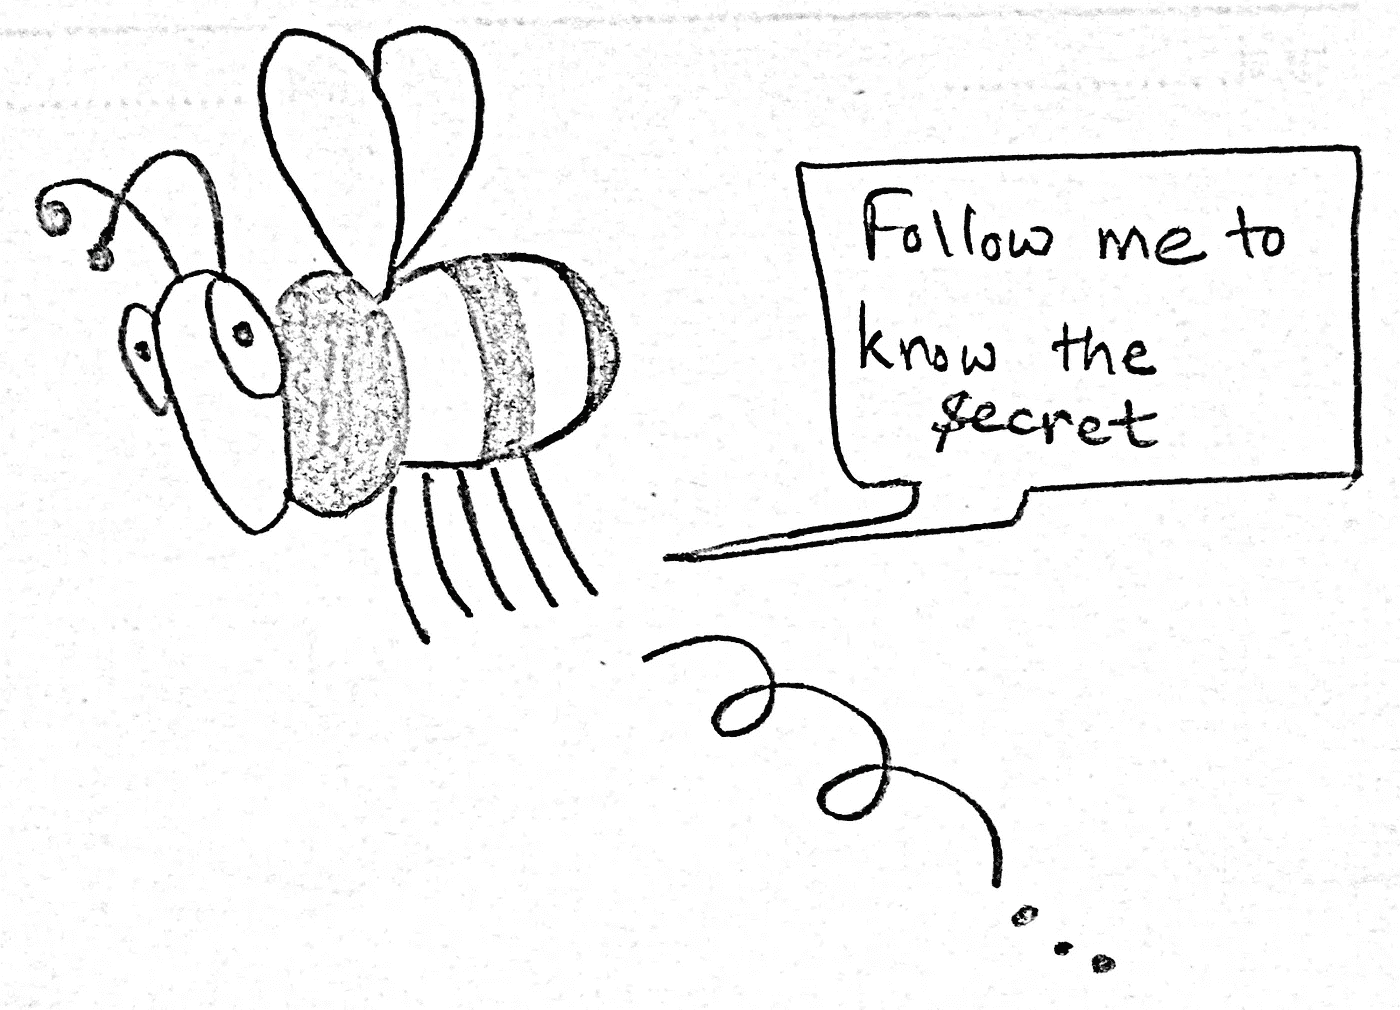 Follow me to
know the
secret